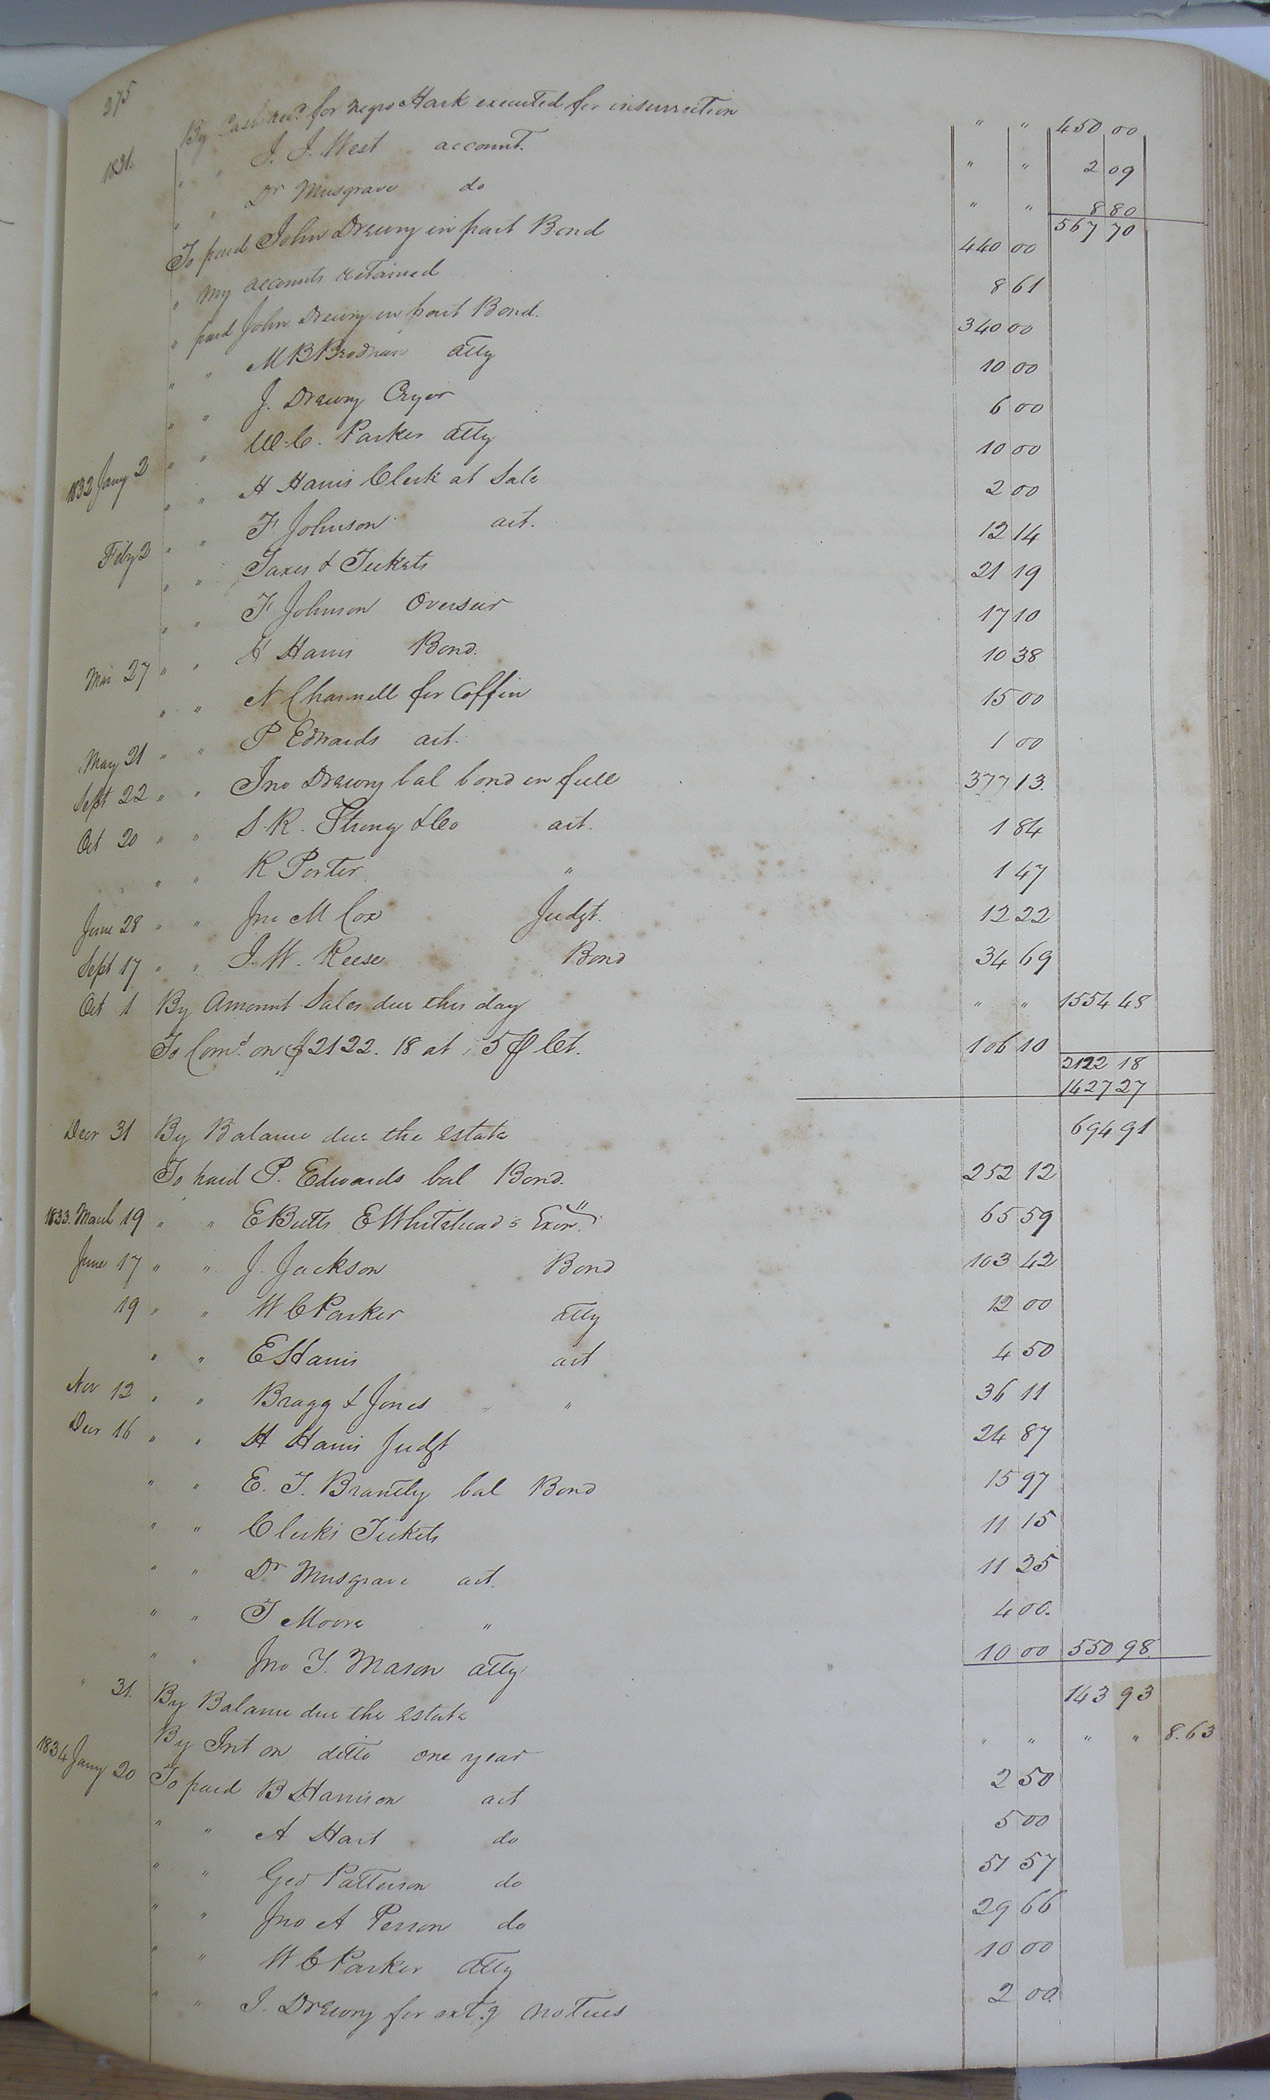 275
1831. By Cash Recd for negro Hark executed for insurrection " " 450 00
" " J. J. West account. " " 2 09
" " Dr Musgrave do " " 8 80
567 70
To paid John Drewry in part Bond 440 00
" my accounts retained 8 61
" paid John Drewry in part Bond. 340 00
" " M B Brodnax atty 10 00
" " J. Drewry Cryer 6 00
" " W. C. Parker atty 10 00
1832 Jany 2 " " H Harris Clerk at Sale 2 00
" " F Johnson act. 12 14
Feby 2 " " Taxes & Tickets 21 19
" " F Johnson Overseer 17 10
" " H Harris Bond. 10 38
Mar 27 " " N Channell for Coffin 15 00
" " P Edwards act. 1 00
May 21 " " Jno Drewry bal bond in full 377 13.
Sept 22 " " S. R. Strong & Co act. 1 84
Oct 20 " " R Porter " 1 47
June 28 " " Jno M Cox Judgt. 12 22
Sept 17 " " J. W. Reese Bond 34 69
Oct 1 By Amount Sales due this day " " 1554 48
To Coms. on $2122.18 at 5 p Ct. 106 10
2122 18
1427 27
Decr 31 By Balance due the estate 694 91
To paid P. Edwards bal Bond. 252 12
1833. March 19 " " E Butts E Whitehead's Exor. " 65 59
June 17 " " J. Jackson Bond 103 42
19 " " W C Parker atty 12 00
" " E Harris act 4 50
Nov 12 " " Bragg & Jones " 36 11
Decr 16 " " H Harris Judgt 24 87
" " E. T. Brantly bal Bond 15 97
" " Clerks Tickets 11 15
" " Dr Musgrave act. 11 25
" " T Moore " 4 00.
" " Jno Y. Mason atty 10 00 550 98
" 31. By Balance due the estate 143 93
By Int on ditto one year " " " " 8.63
1834 Jany 20 To paid B Harrison act 2 50
" " A Hart do 5 00
" " Geo Patterson do 51 57
" " Jno A Person do 29 66
" " W C Parker atty 10 00
" " J. Drewry for notices 2 00.